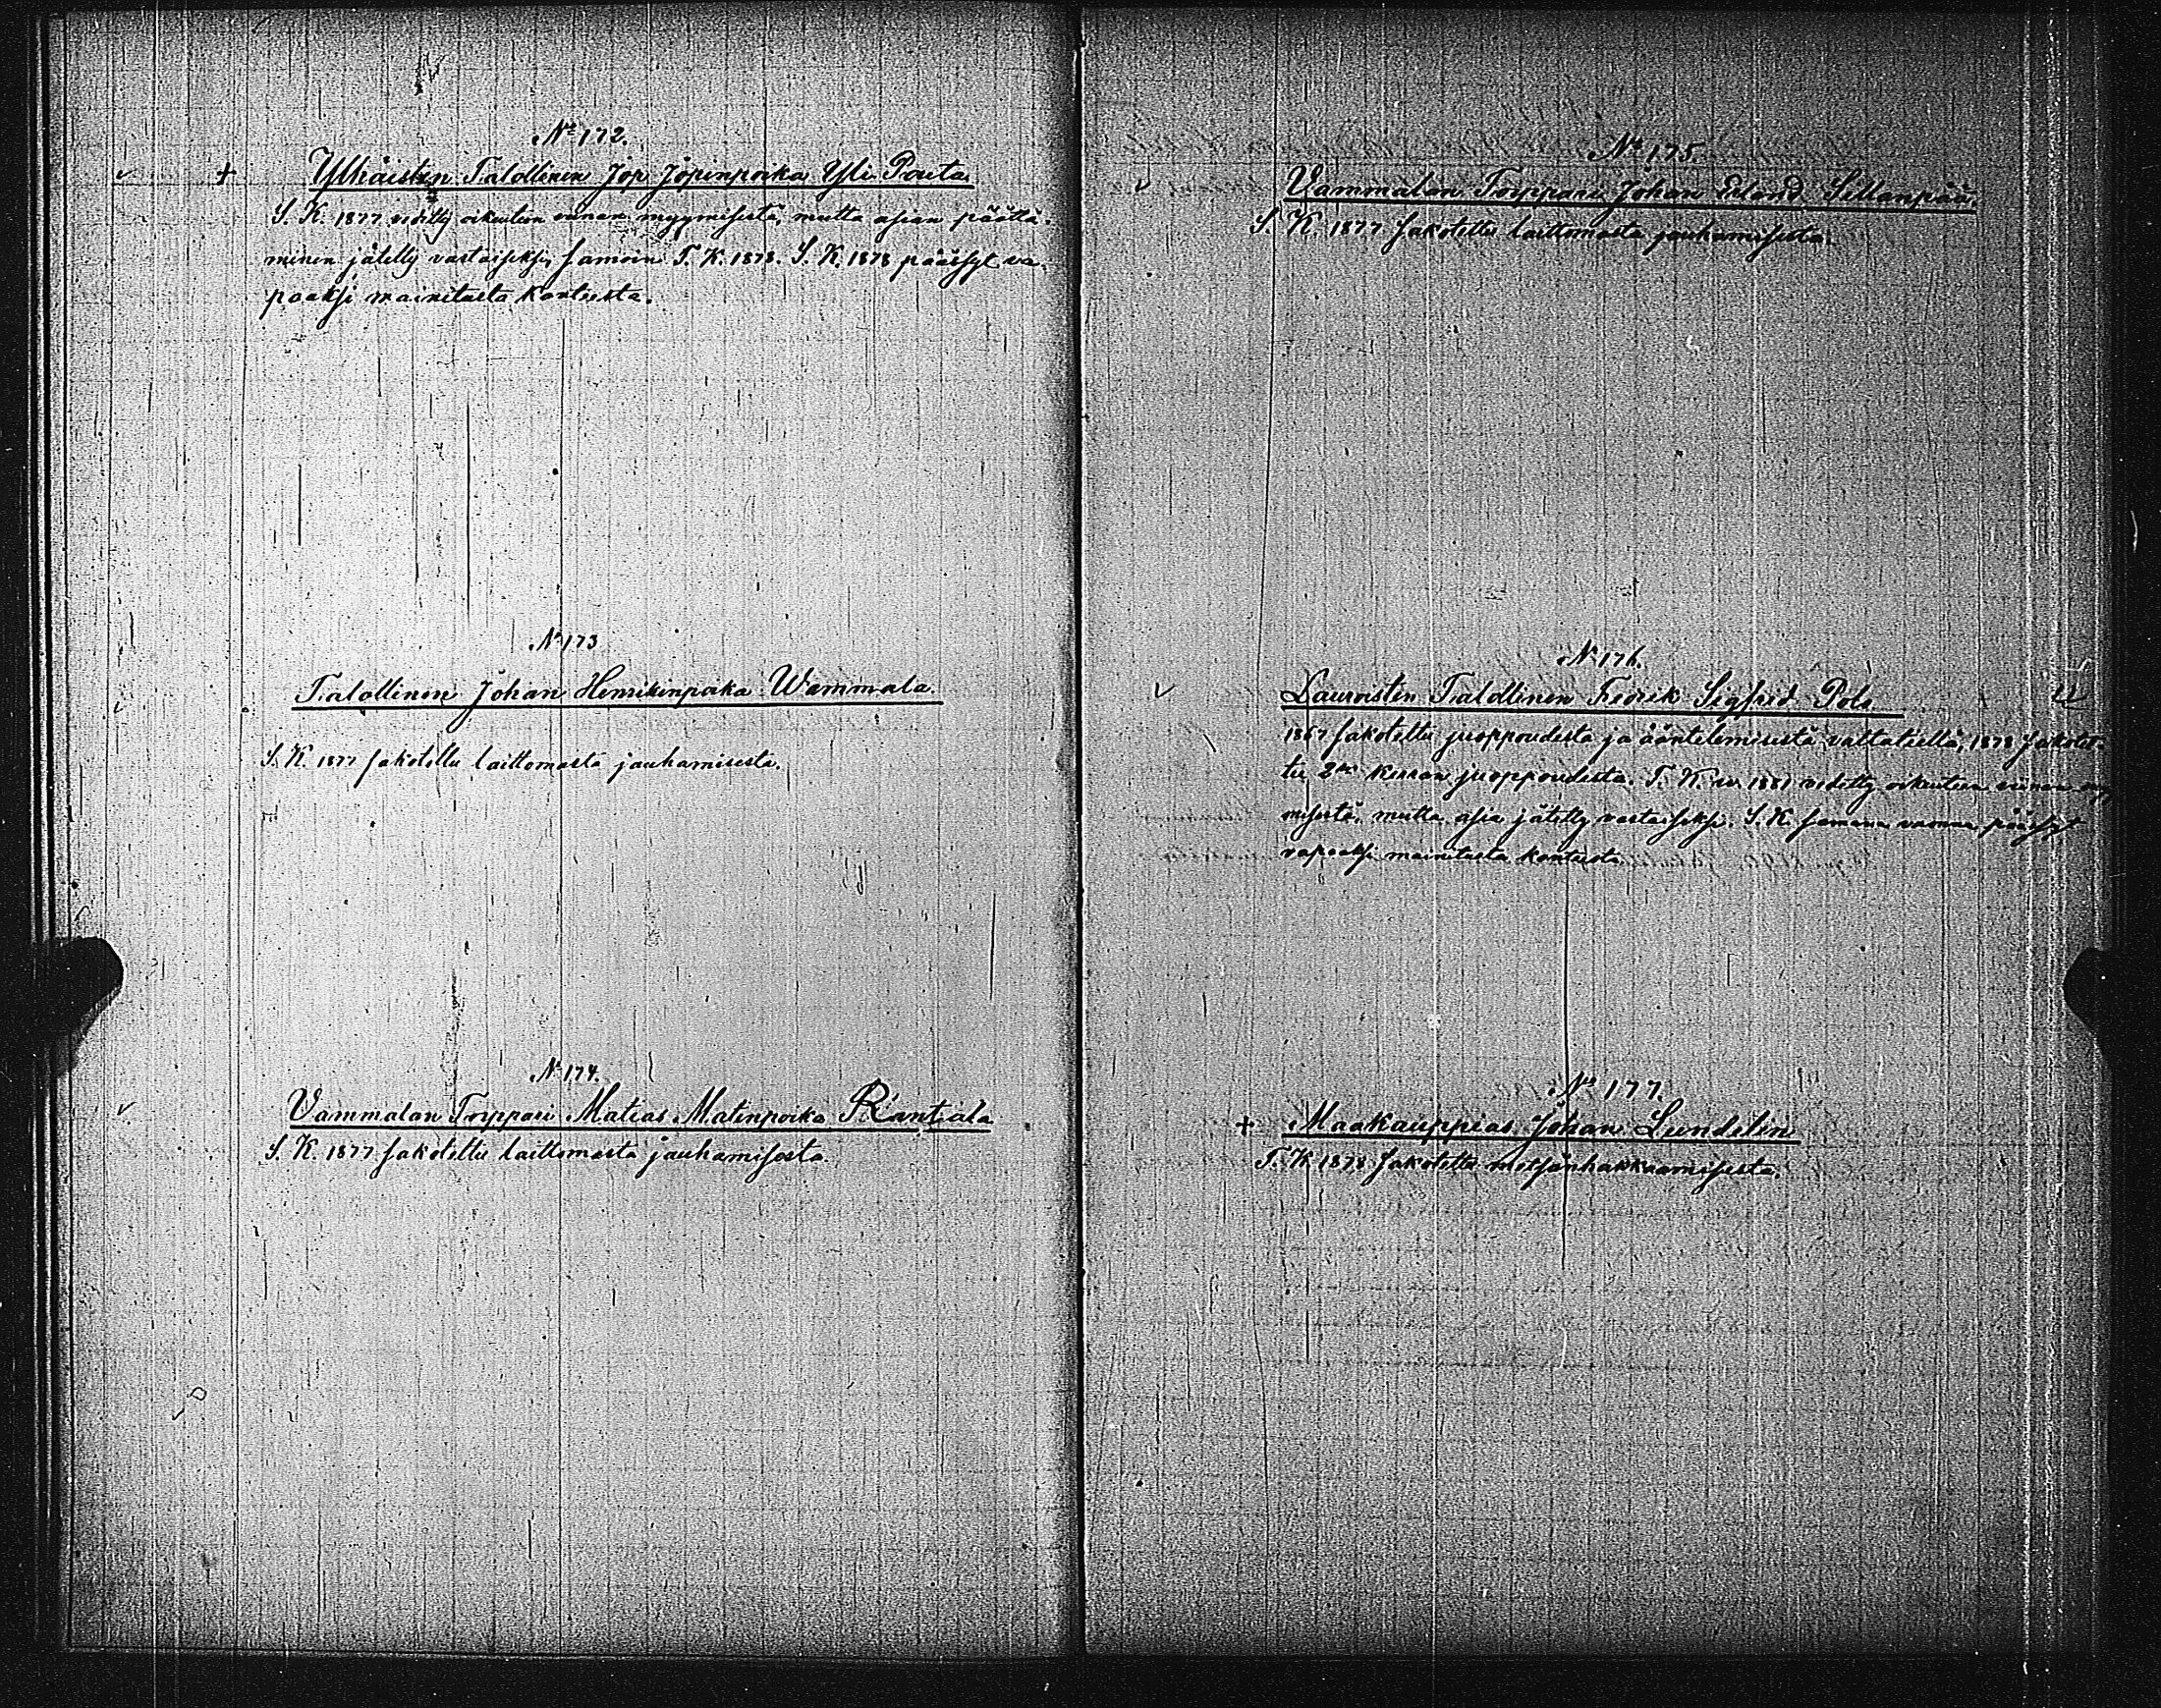 No 172.
Ylhäisten Talollinen Jop Jopinpoika Yli Pouta
S. K. 1877 vedetty oikeuteen viinan myymisestä, mutta asian päättä-
minen jätetty vastaiseksi, samoin T. K. 1878. S. K. 1878 päässyt va-
paaksi mainitusta kanteesta.
No 173
Talollinen Johan Henrikinpoika Wammala.
S. K. 1877 sakotettu laittomasta jauhamisesta.
No 174.
Vammalan Torppari Matias Matinpoika Rantala
S. K. 1877 sakotettu laittomasta jauhamisesta.
No 175.
Vammalan Torppari Johan Edvard Sillanpää.
S. K. 1877 sakotettu laittomasta jauhamisesta.
No 176.
Lauroisten Talollinen Fredrik Sigfrid Pole
1867 sakotettu juoppoudesta ja ääntelemisestä valtatiellä, 1878 sakotet-
tu 2en kerran juoppoudesta. T. K. v. 1881 vedetty oikeuteen viinan myy
misestä, mutta asia jätetty vastaiseksi. S. K. samana vuonna päässyt
vapaaksi mainitusta kanteesta
No 177.
Maakauppias Johan Lundelin
T. K. 1878 sakotettu metsänhakkaamisesta.